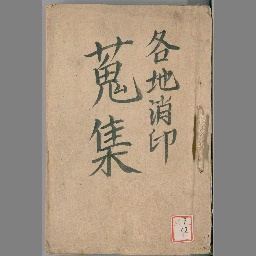 各地消印
蒐集